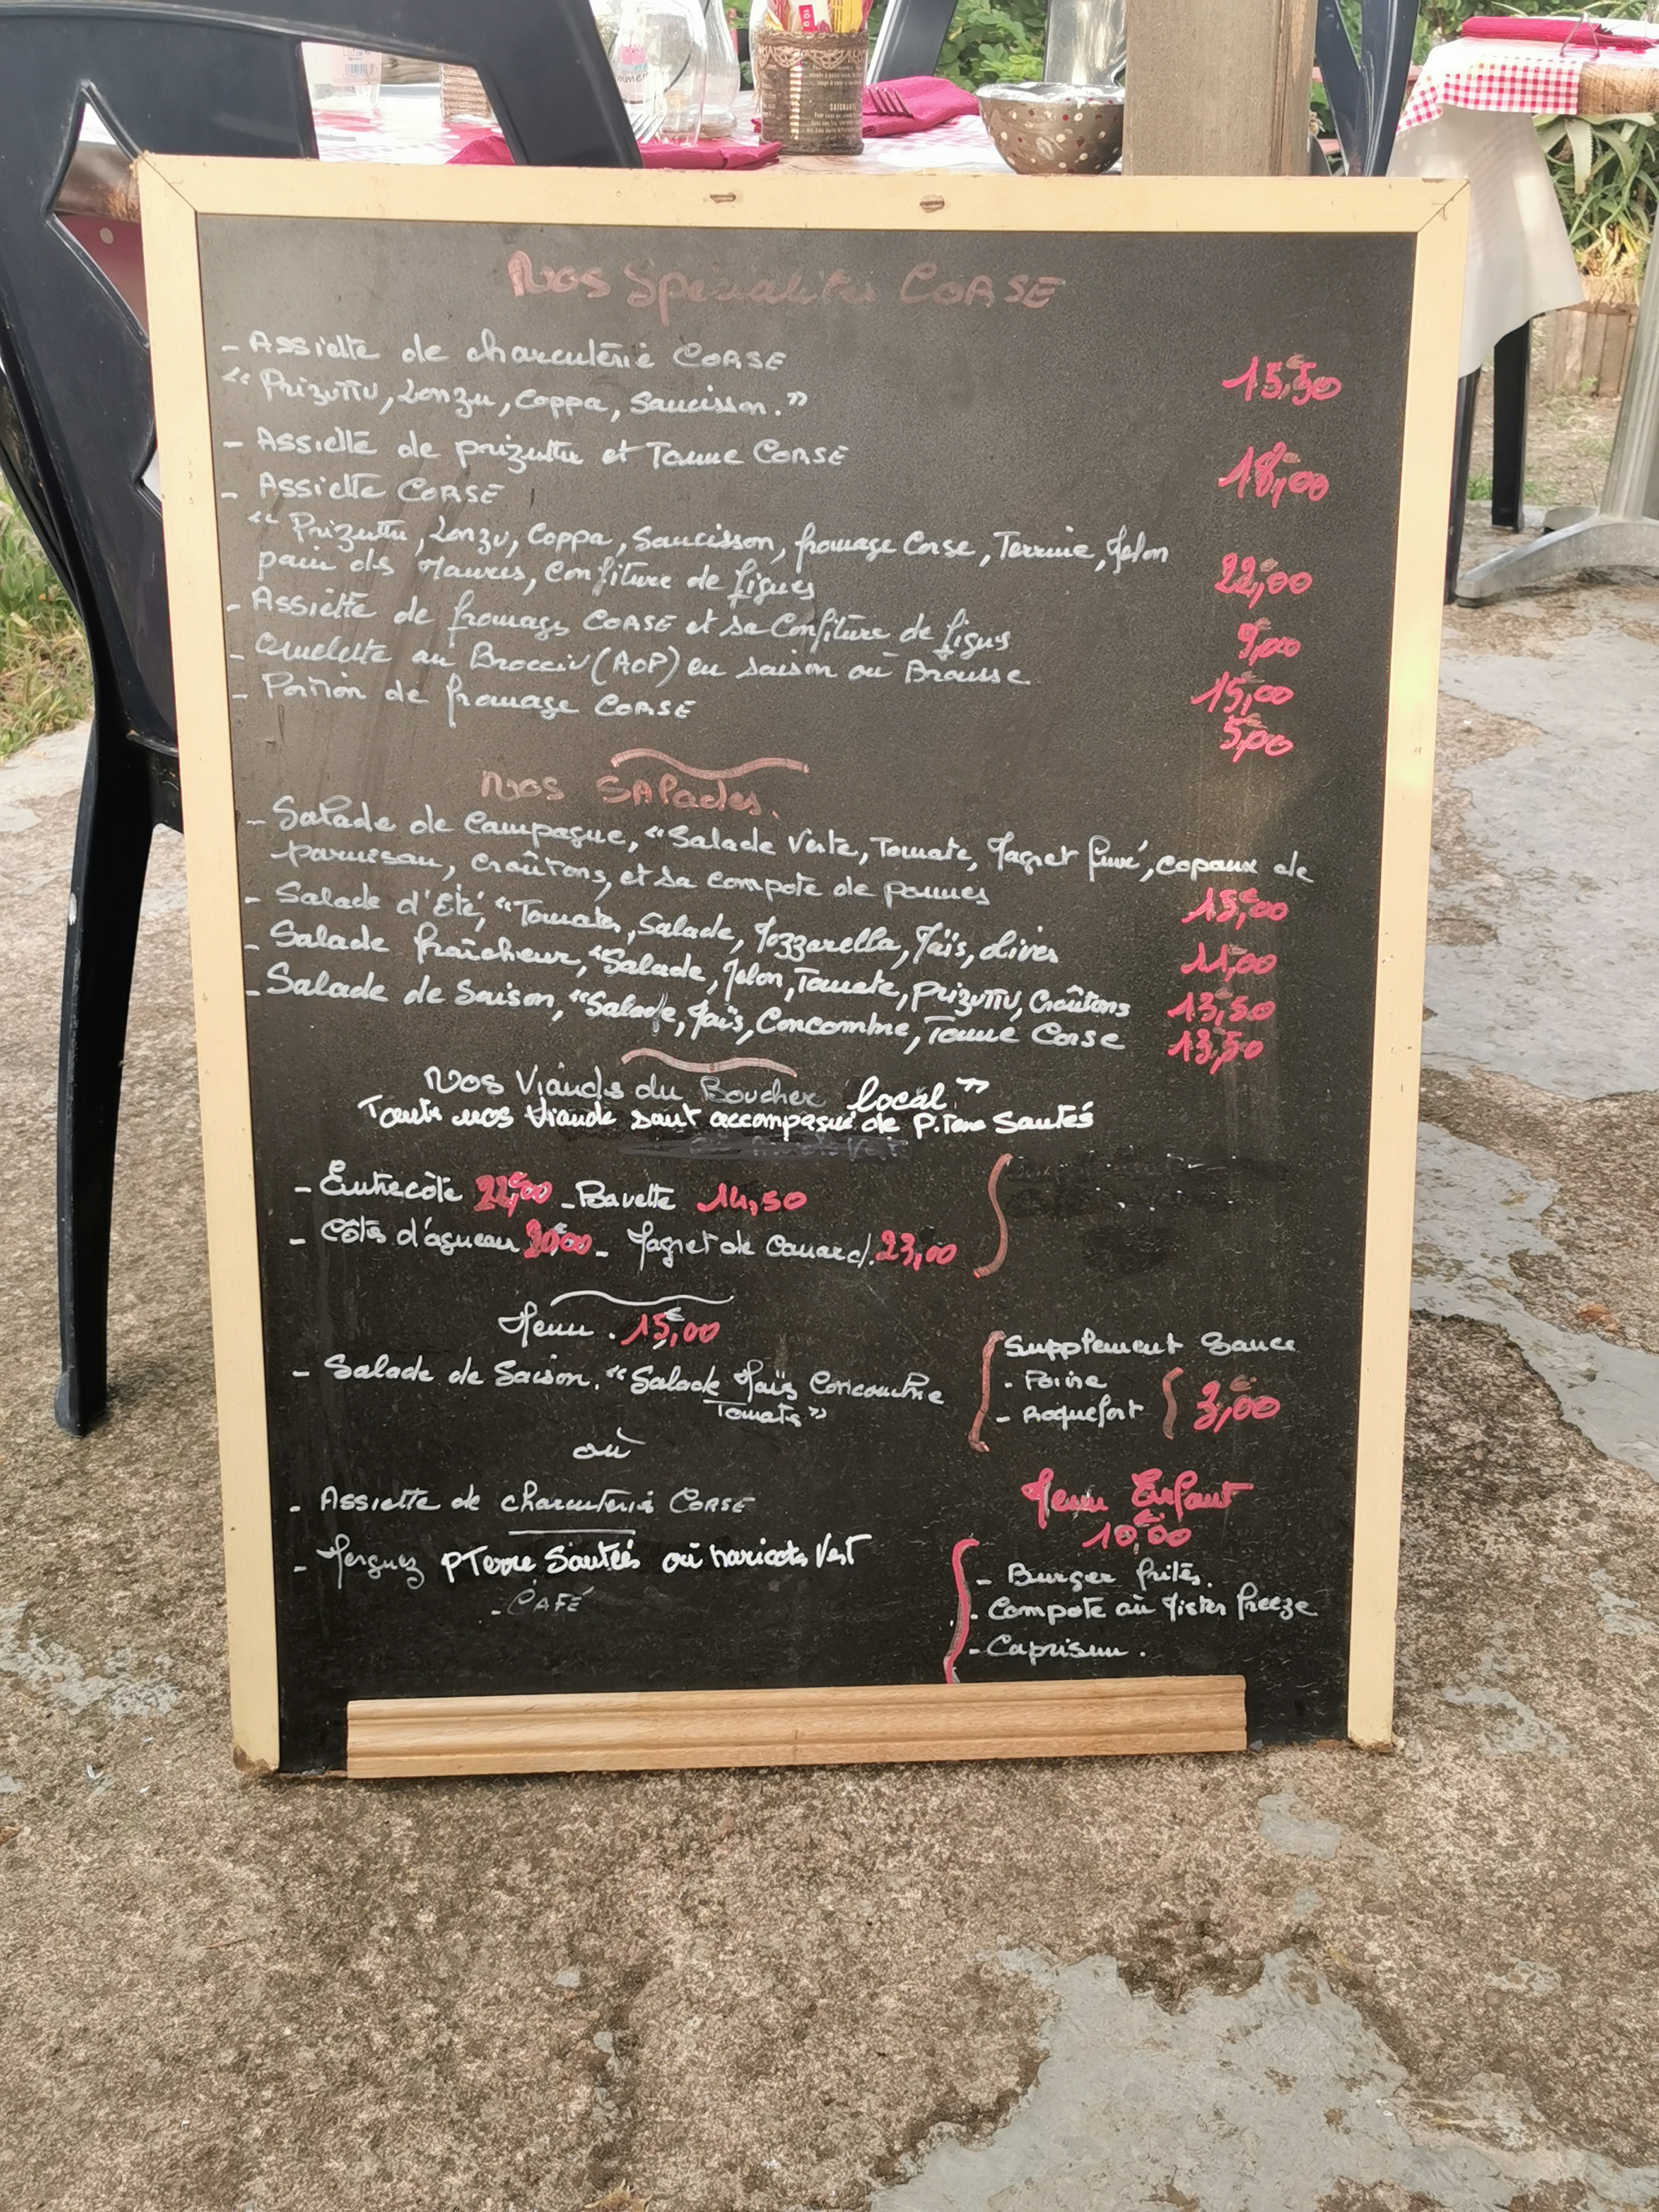 Nos Spécialités CORSE
- Assiette de charcuterie CORSE
"Prizuttu, Lonzu, Coppa, Saucisson." 15,50€
- Assiette de prizuttu et Tomme CORSE 18,00€
- Assiette CORSE
"Prizuttu, Lonzu, Coppa, Saucisson, fromage Corse, Terrine, Melon
pain des Maures, Confiture de figues 22,00€
- Assiette de fromages CORSE et sa Confiture de figues 9,00
- Omelette au Brocciu (AOP) en saison où Brousse 15,00€
- Portion de fromage CORSE 5,00€
Nos Salades.
- Salade de Campagne, "Salade Verte, Tomate, Magret fumé, copaux de
parmesan, Croûtons, et sa compote de pommes 15,00€
- Salade d'Eté, "Tomates, Salade, Mozzarella, Maïs, olives 11,00€
- Salade fraîcheur, "Salade, Melon, Tomate, prizuttu, Croûtons 13,50€
- Salade de Saison, "Salade, Maïs, Concombre, Tomme Corse 13,50€
Nos Viandes du Boucher local"
Toute nos Viande sont accompagné de P.Terre Sautés
- Entrecôte 22,00€ - Bavette 14,50
- Côtes d'agneau 20,00€ - Magret de Canard. 23,00
Menu . 15,00€
- Salade de Saison. "Salade Maïs Concombre
Tomate"
où
- Assiette de charcuterie CORSE
- Merguez PTerre Sautées où haricots Vert
- CAFÉ
Supplement Sauce
- Poivre
- Roquefort 3,00€
Menu Enfant
10,00€
- Burger frites.
- Compote où Mister freeze
- Caprisun.